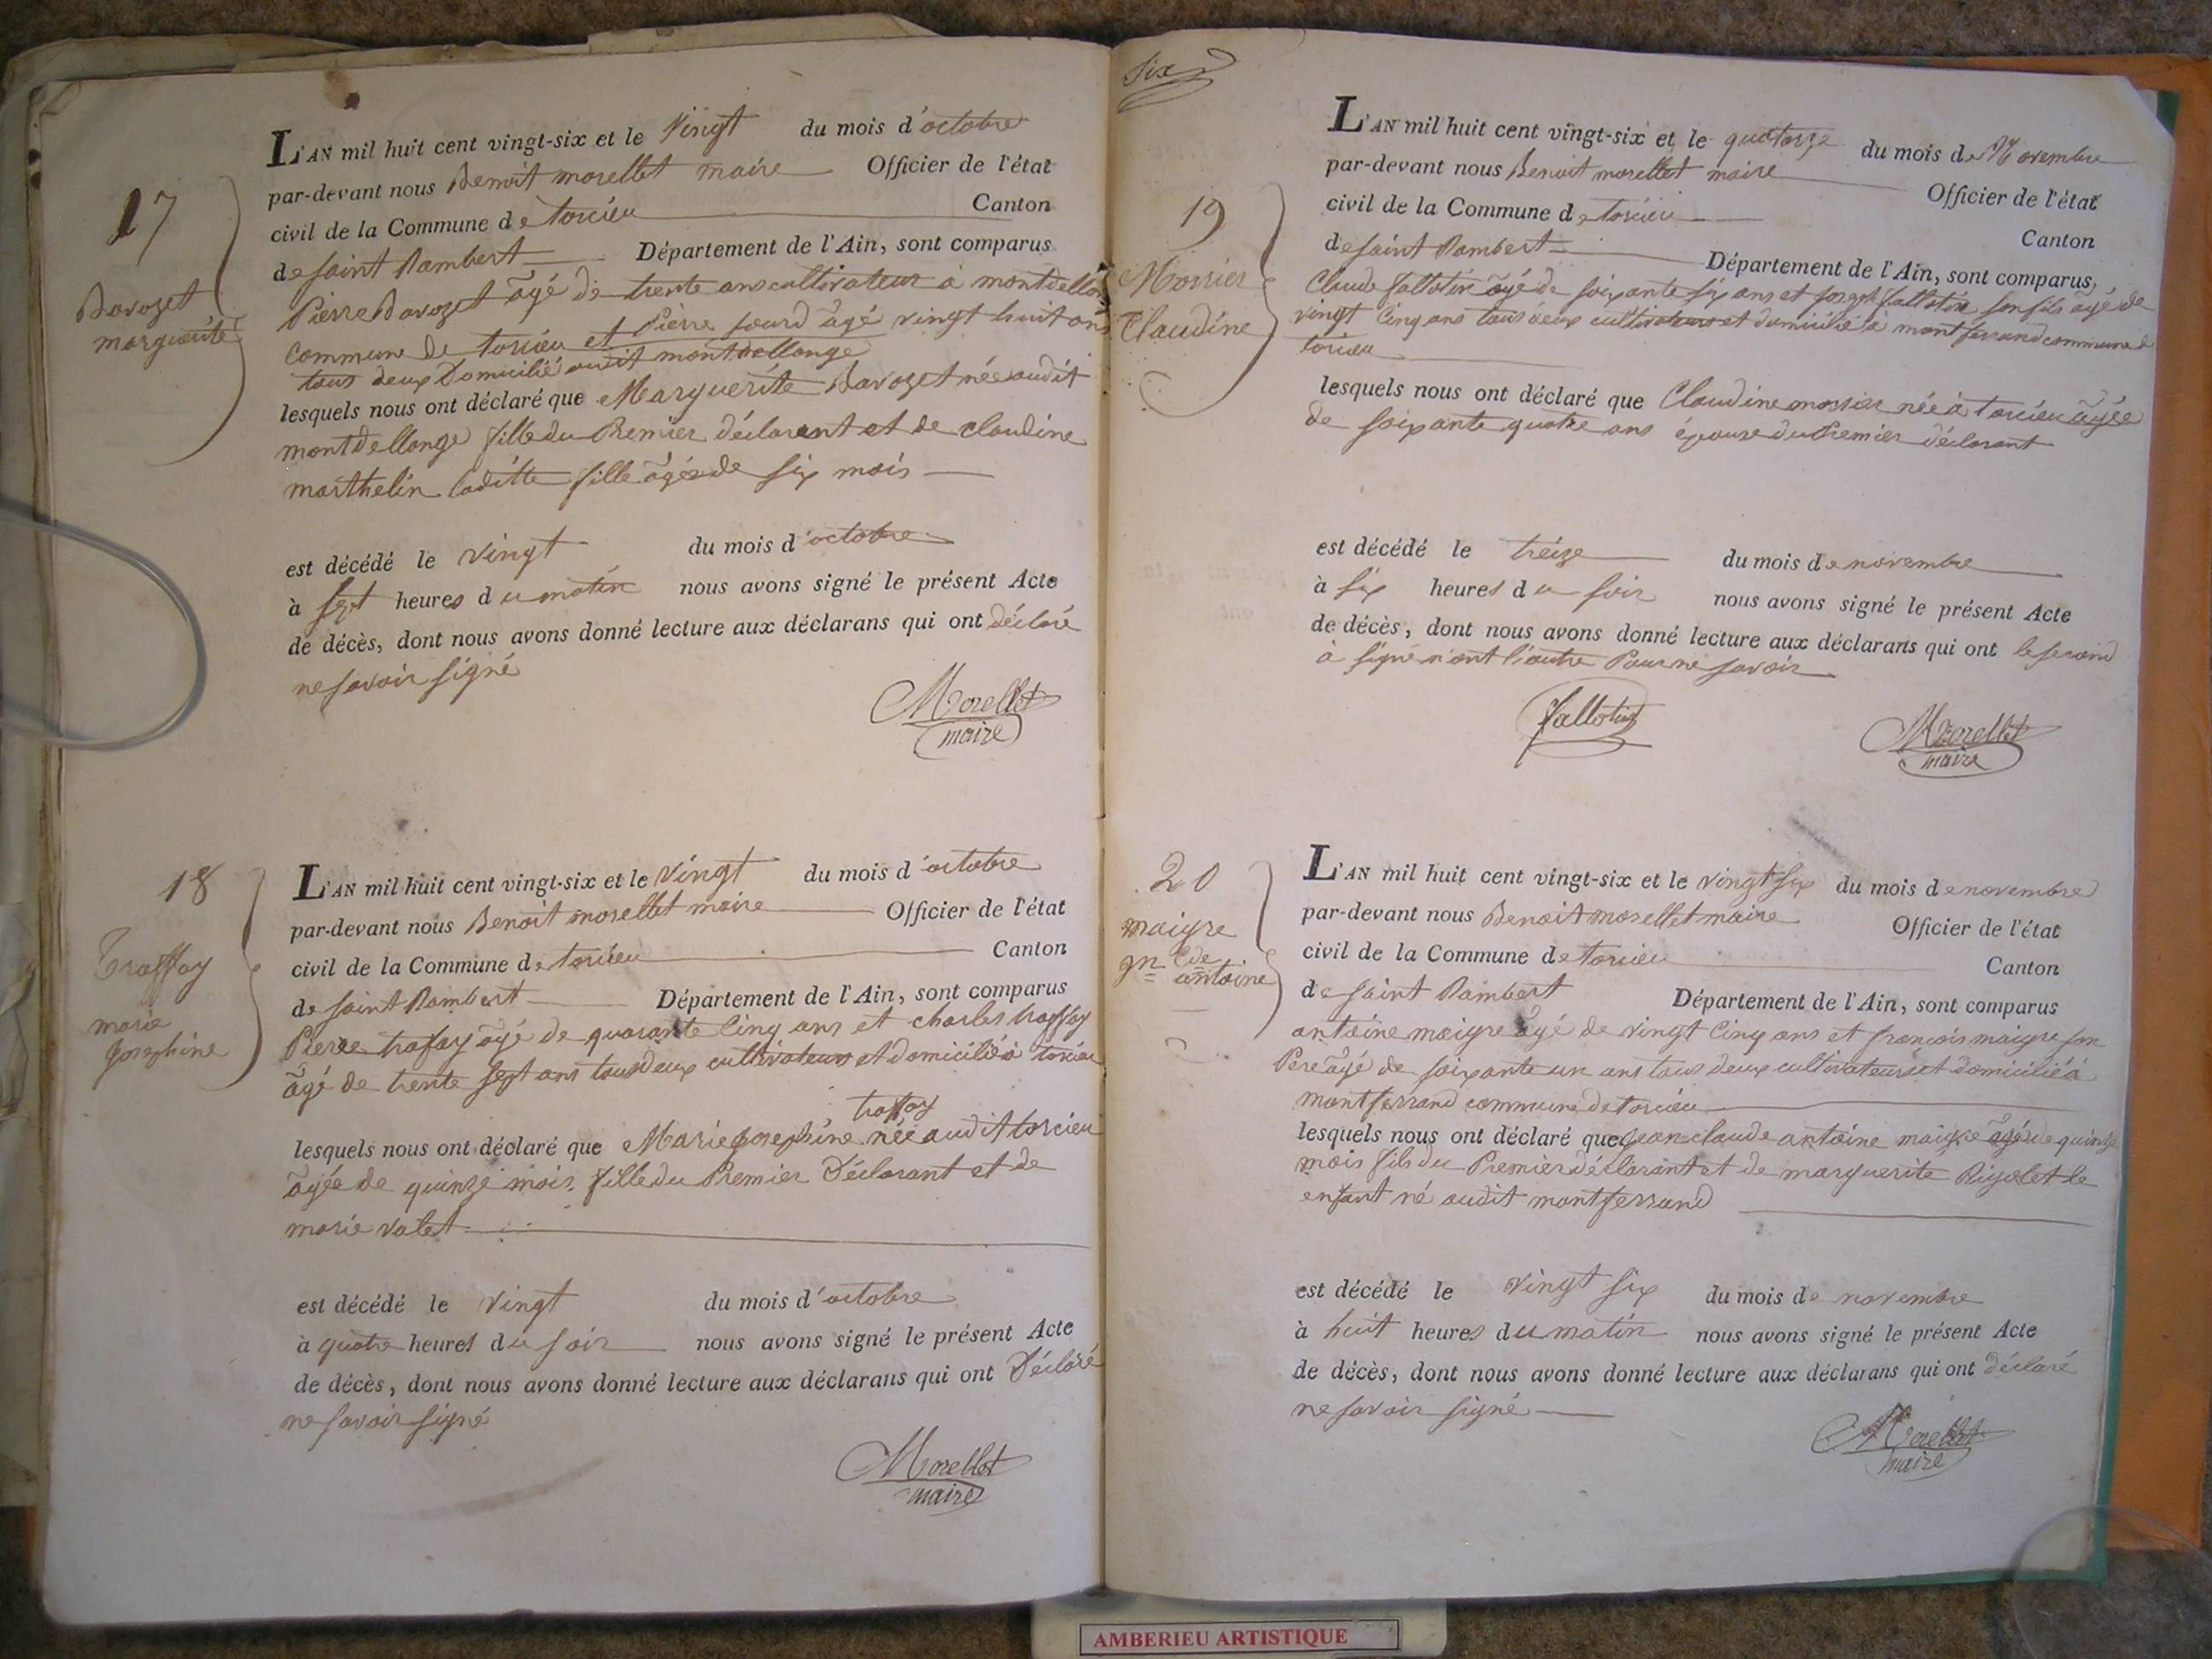 17
Bavozet
marguerite
L'AN mil huit cent vingt-six et le Vingt du mois d'octobre
par-devant nous Benoit morellet maire Officier de l'état
civil de la Commune de torcieu Canton
de saint Rambert Département de l'Ain, sont comparus
Pierre Bavozet âgé de trente ans cultivateur à montdellonge
commune de torcieu et Pierre sourd âgé vingt huit ans
tous deux Domicilié audit montdellonge
lesquels nous ont déclaré que Marguerite Bavozet née audit
montdellonge fille du Premier déclarant et de claudine
marthelin laditte fille âgée de six mois
est décédé le vingt du mois d'octobre
à sept heures du matin nous avons signé le présent Acte
de décès, dont nous avons donné lecture aux déclarans qui ont déclaré
ne savoir signé
Morellet
maire
18
Traffay
marie
Josephine
L'AN mil huit cent vingt-six et le Vingt du mois d'octobre
par-devant nous Benoit morellet maire Officier de l'état
civil de la Commune de torcieu Canton
de saint Rambert Département de l'Ain, sont comparus
Pierre trafay âgé de quarante cinq ans et charles traffay
âgé de trente sept ans tous deux cultivateurs et domicilié à torcieu
traffay
lesquels nous ont déclaré que Marie josephine née audit torcieu
âgée de quinze mois fille du Premier Déclarant et de
marie valet
est décédé le vingt du mois d'octobre
à quatre heures du soir nous avons signé le présent Acte
de décès, dont nous avons donné lecture aux déclarans qui ont Déclaré
ne savoir signé
Morellet
maire
Six
19
Mossier
Claudine
L'AN mil huit cent vingt-six et le quatorze du mois de Novembre
par-devant nous Benoit morellet maire Officier de l'état
civil de la Commune de torcieu Canton
de saint Rambert Département de l'Ain, sont comparus,
Claude fallotin âgé de soixante six ans et joseph fallotin son fils âgé de
vingt cinq ans tous deux cultivateurs et domicilié à montferrand commune de
torcieu
lesquels nous ont déclaré que Claudine mossier née à torcieu âgée
de soixante quatre ans épouse du Premier déclarant
est décédé le treize du mois de novembre
à six heures du soir nous avons signé le présent Acte
de décès, dont nous avons donné lecture aux déclarans qui ont le second
à signé n'ont l'autre Pour ne savoir
fallotin
Morellet
maire
20
maigre
jn Cde
antoine
L'AN mil huit cent vingt-six et le vingt six du mois de novembre
par-devant nous Benoit morellet maire Officier de l'état
civil de la Commune de torcieu Canton
de saint Rambert Département de l'Ain, sont comparus
antoine maigre âgé de vingt cinq ans et françois maigre son
Pere âgé de soixante un ans tous deux cultivateurs et domicilié à
montferrand commune de torcieu
lesquels nous ont déclaré que jean claude antoine maigre âgé de quinze
mois fils du Premier déclarant et de marguerite Rigolet le
enfant né audit montferrand
est décédé le vingt six du mois de novembre
à huit heures du matin nous avons signé le présent Acte
de décès, dont nous avons donné lecture aux déclarans qui ont déclaré
ne savoir signé
Morellet
maire
AMBERIEU ARTISTIQUE